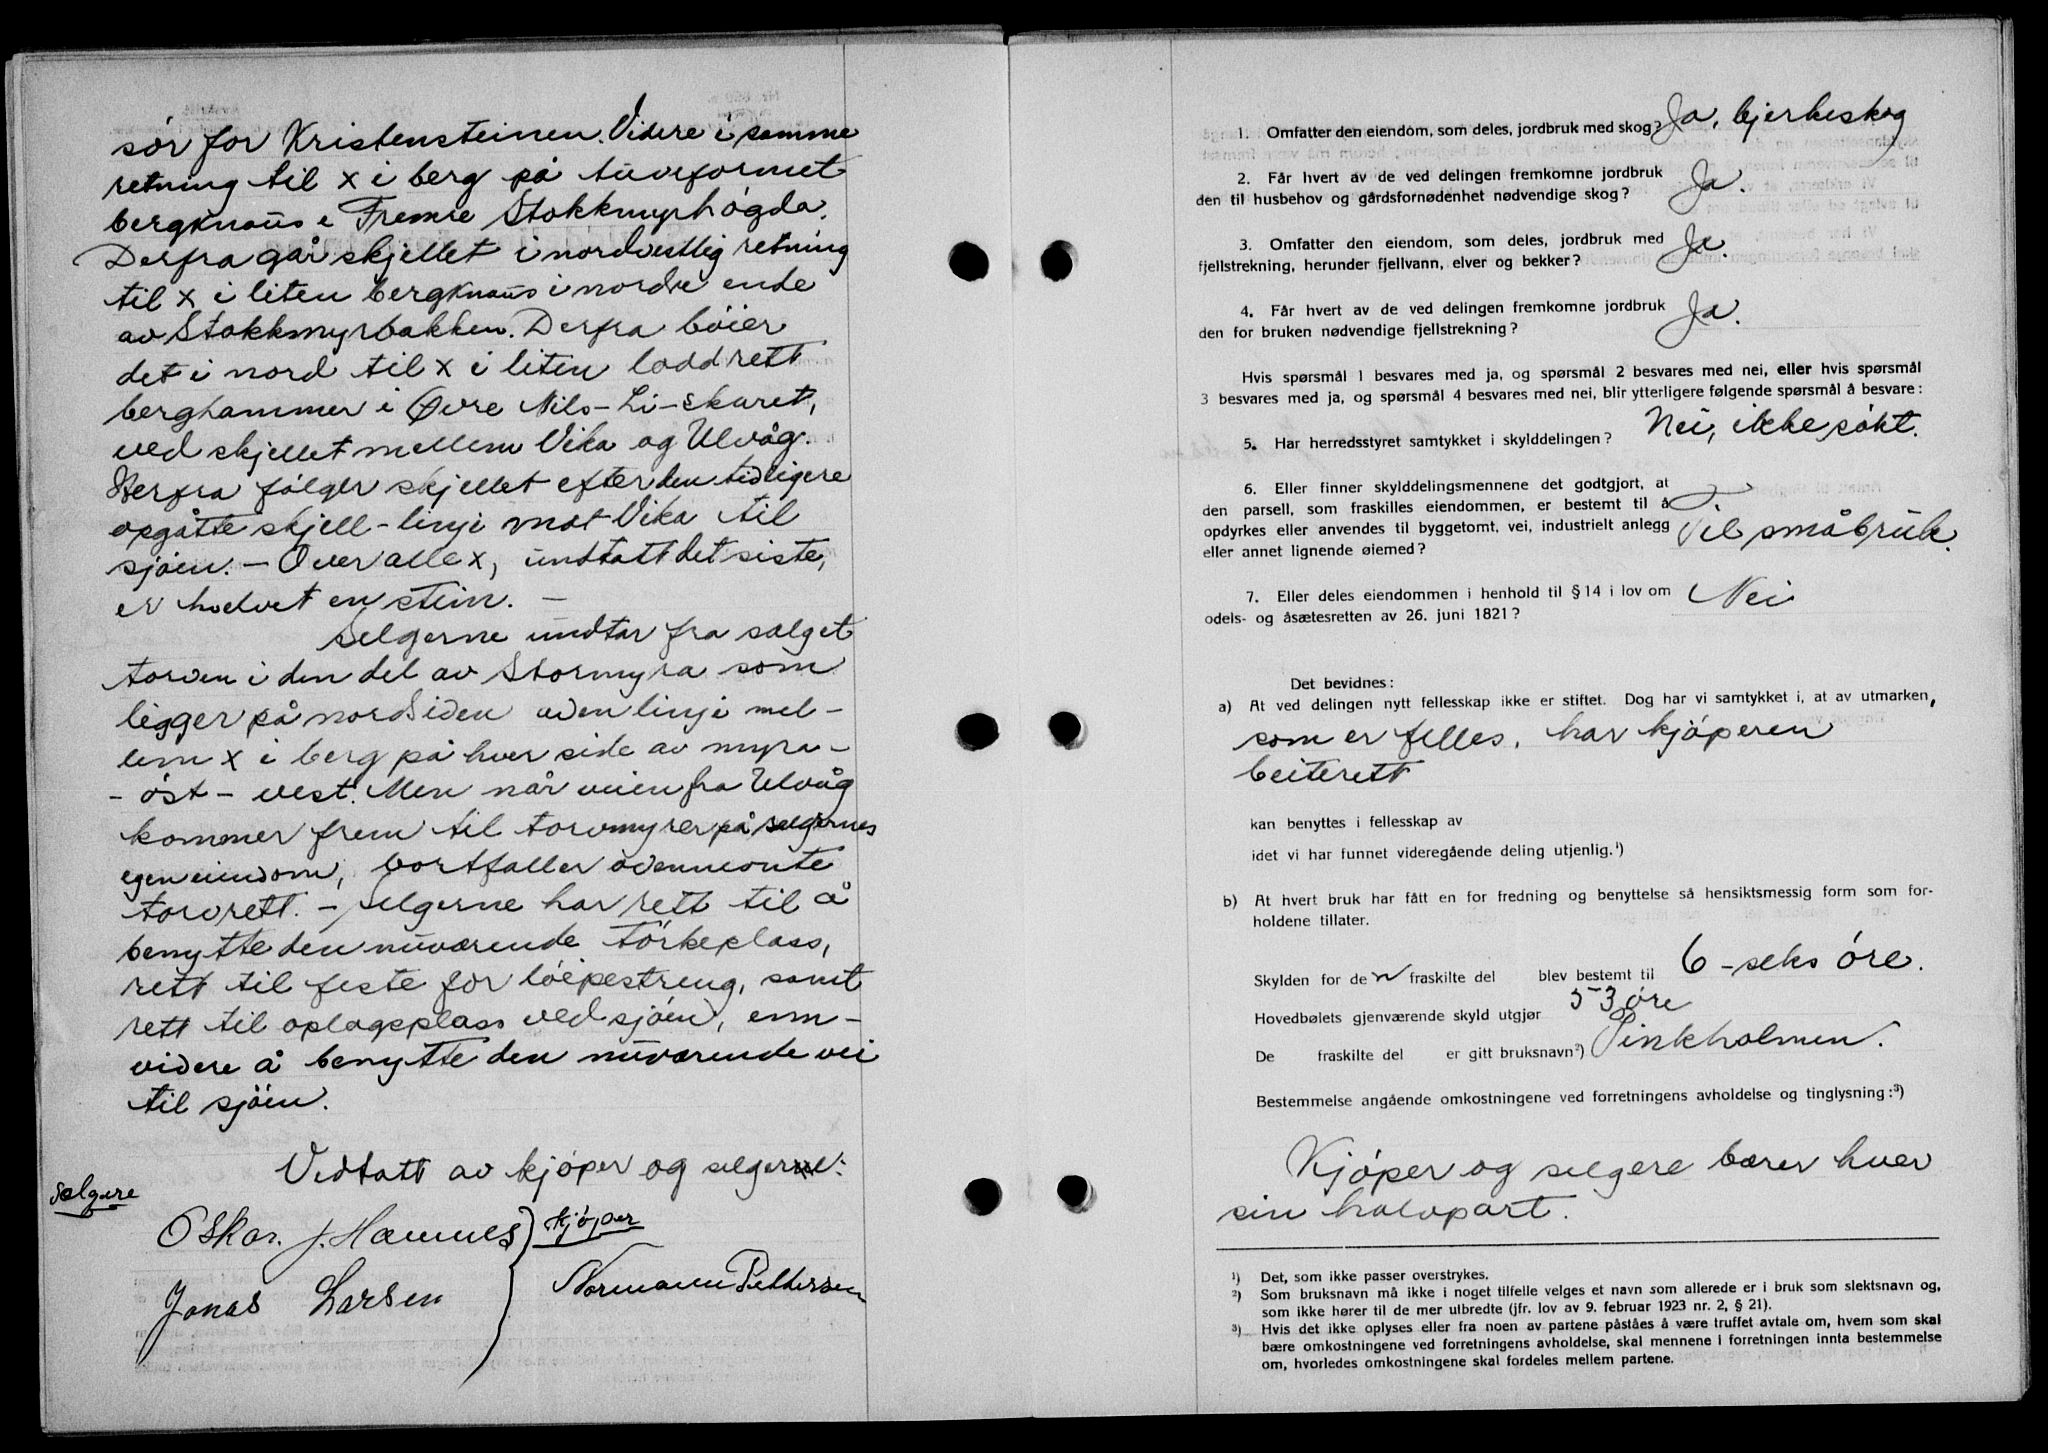 sör for Kristensteinen. Videre i samme
retning til x i berg på tueformet
bergknaus i Fremre Stokkmyrhögda.
Derfra går skjellet i nordvestlig retning
til x i liten bergknaus i nordre ende
av Stokkmyrbakken. Derfra böier
det i nord til x i liten loddrett
berghammer i Øvre Nils-Li-skaret,
ved skjellet mellem Vika og Ulvåg.
Herfra fölger skjellet efter den tidligere
opgåtte skjell-linje mot Vika til
sjöen. - Over alle x, undtatt det siste,
er hvelvet en stein. -
Selgerne undtar fra salget
torven i den del av Stormyra som
ligger på nordsiden av en linje mel-
lem x i berg på hver side av myra -
- öst - vest. Men når veien fra Ulvåg
kommer frem til torvmyrer på selgernes
egen eiendom, bortfaller ovennevnte
torvrett. - Selgerne har rett til å
benytte den nuværende törkeplass,
rett til feste for löipestreng, samt
rett til oplagsplass ved sjöen, enn-
videre å benytte den nuværende vei
til sjöen.
Vedtatt av kjöper og selgerne:
Selgere
Oskar J. Hamnes
kjöper
Jonas Larsen
Normann Pettersen
1. Omfatter den eiendom, som deles, jordbruk med skog? Ja, bjerkeskog
2. Får hvert av de ved delingen fremkomne jordbruk
den til husbehov og gårdsfornødenhet nødvendige skog? Ja.
3. Omfatter den eiendom, som deles, jordbruk med
fjellstrekning, herunder fjellvann, elver og bekker? Ja.
4. Får hvert av de ved delingen fremkomne jordbruk
den for bruken nødvendige fjellstrekning? Ja.
Hvis spørsmål 1 besvares med ja, og spørsmål 2 besvares med nei, eller hvis spørsmål
3 besvares med ja, og spørsmål 4 besvares med nei, blir ytterligere følgende spørsmål å besvare:
5. Har herredsstyret samtykket i skylddelingen? Nei, ikke sökt.
6. Eller finner skylddelingsmennene det godtgjort, at
den parsell, som fraskilles eiendommen, er bestemt til å
opdyrkes eller anvendes til byggetomt, vei, industrielt anlegg
eller annet lignende øiemed? Til småbruk.
7. Eller deles eiendommen i henhold til § 14 i lov om
odels- og åsætesretten av 26. juni 1821? Nei
Det bevidnes:
a) At ved delingen nytt fellesskap ikke er stiftet. Dog har vi samtykket i, at av utmarken,
som er felles, har kjöperen
beiterett
kan benyttes i fellesskap av
idet vi har funnet videregående deling utjenlig.¹)
b) At hvert bruk har fått en for fredning og benyttelse så hensiktsmessig form som for-
holdene tillater.
Skylden for den fraskilte del blev bestemt til 6 - seks öre.
Hovedbølets gjenværende skyld utgjør 53 öre
De fraskilte del er gitt bruksnavn²) Finkholmen.
Bestemmelse angående omkostningene ved forretningens avholdelse og tinglysning:³)
Kjöper og selgere bærer hver
sin halvpart.
¹) Det, som ikke passer overstrykes.
²) Som bruksnavn må ikke i noget tilfelle velges et navn som allerede er i bruk som slektsnavn og,
som ikke hører til de mer utbredte (jfr. lov av 9. februar 1923 nr. 2, § 21).
³) Hvis det ikke oplyses eller fra noen av partene påståes å være truffet avtale om, hvem som skal
bære omkostningene ved forretningens avholdelse, skal mennene i forretningen innta bestemmelse
om, hvorledes omkostningene skal fordeles mellem partene.